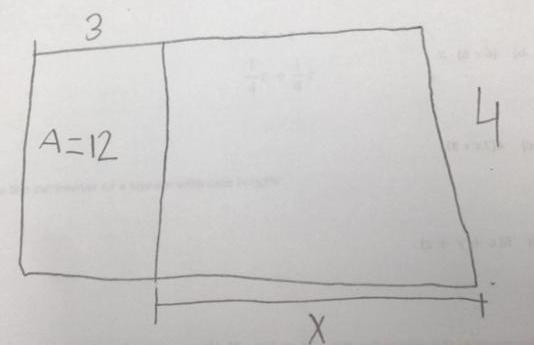 3
A=12
4
X